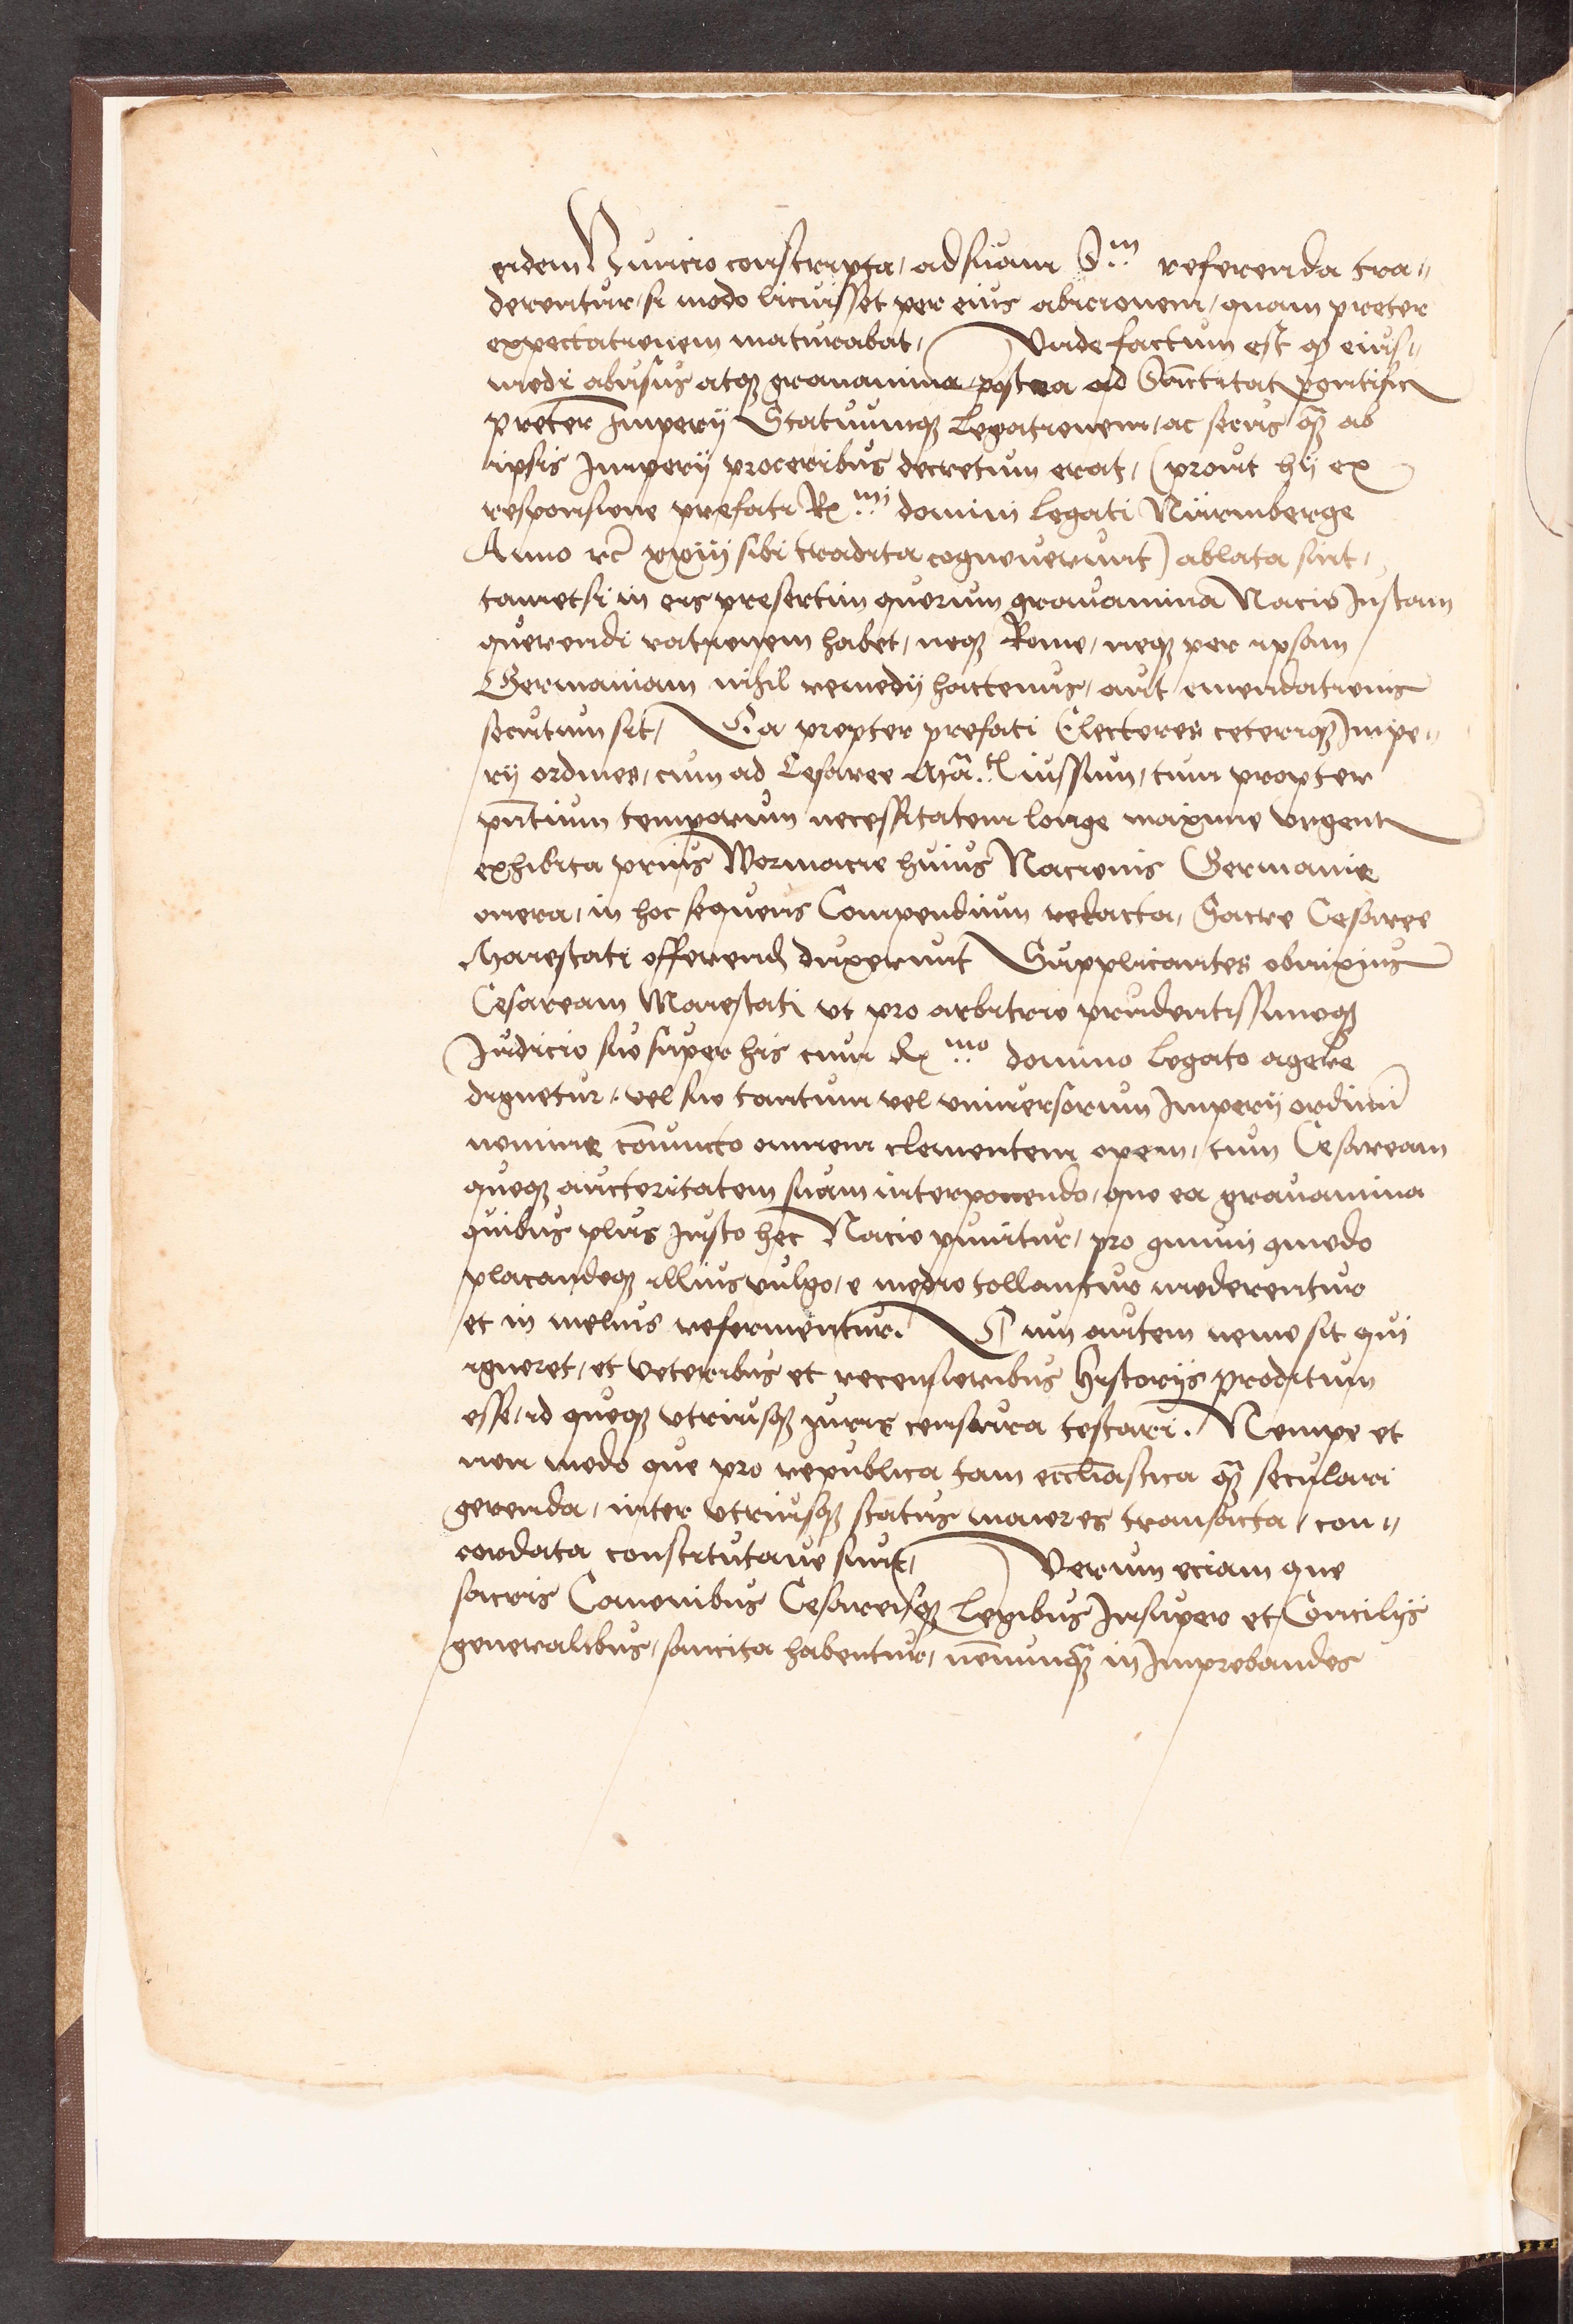 eidem Nuncio conscripta, ad suam S.m referenda tra„
derentur, si modo licuisset per eius abicionem, quam preter
expectationem maturabat, Unde factum est q̃ eius„
modi abusus atqȝ grauamina, postea ad Sanctitat Pontific
preter Imperij Statuumqȝ Legationem, ac secus q̃ ab
ipsis Imperij proceribus decretum erat, (prout hij ex
responsione prefati Rmi domini legati Nürmberge
Anno rc̃ xxiiij sibi tradita cognouerunt) ablata sint,
tametsi in eis presertim quorum grauamina Nacio Justam
querendi rationem habet, neqȝ Rome, neqȝ per ipsam
Germaniam nihil remedij hactenus, aut emendationis
secutum sit, Ea propter prefati Electores ceteriqȝ Impe„
rij ordines, cum ad Cesaree Mã.tis iussum, tum propter
pñtium temporum necessitatem longe maxime urgent
exhibita prius Wormacie huius Nacionis Germanie
onera, in hoc sequens Compendium redacta, Sacre Cesaree
Maiestati offerend duxerunt Supplicantes obnixius
Cesaream Maiestati ut pro arbitrio prudentissimoqȝ
Judicio suo super his cum Rmo domino legato agere
dignetur, vel suo tantum vel universorum Imperij ordinũ
nomine cõiuncto omnem clementem opem, tum Cesaream
quoqȝ auctoritatem suam interponendo, quo ea grauamina
quibus plus justo hec Nacio punitur, pro omni quodo
placandoqȝ illius vulgo, e medio tollantur moderentur
et in melius reformentur. Cum autem nemo sit qui
ignoret, et veteribus et recensioribus Historijs proditum
esse, id quoqȝ utriusqȝ juris censura testari. Nempe et
non modo que pro republica tam ecclĩastica q̃ seculari
gerenda, inter utriusqȝ status maiores transacta, con„
cordata constitutaue sunt, Verum eciam que
sacris Canonibus Cesareisqȝ Legibus Insuper et Concilijs
generalibus, sancita habentur, nõnunq̃ in Improbandos